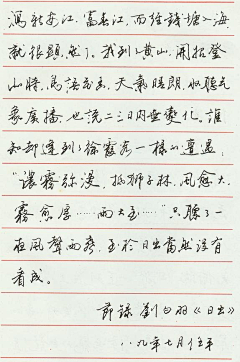 泻新安江,富春江,而经钱塘入海,
就很显然了。我到了黄山,开始登
山时,鸟语花香,天气晴朗,收听气
象广播,也说二三日内无变化。谁
知却遇到了徐霞客一样的遭遇,
“浓雾弥漫,抵狮子林,风愈大,
雾愈厚……雨大至……”只听了一
夜风声雨声,至于日出当然没有
看成。
节录刘白羽《日出》
八九年七月